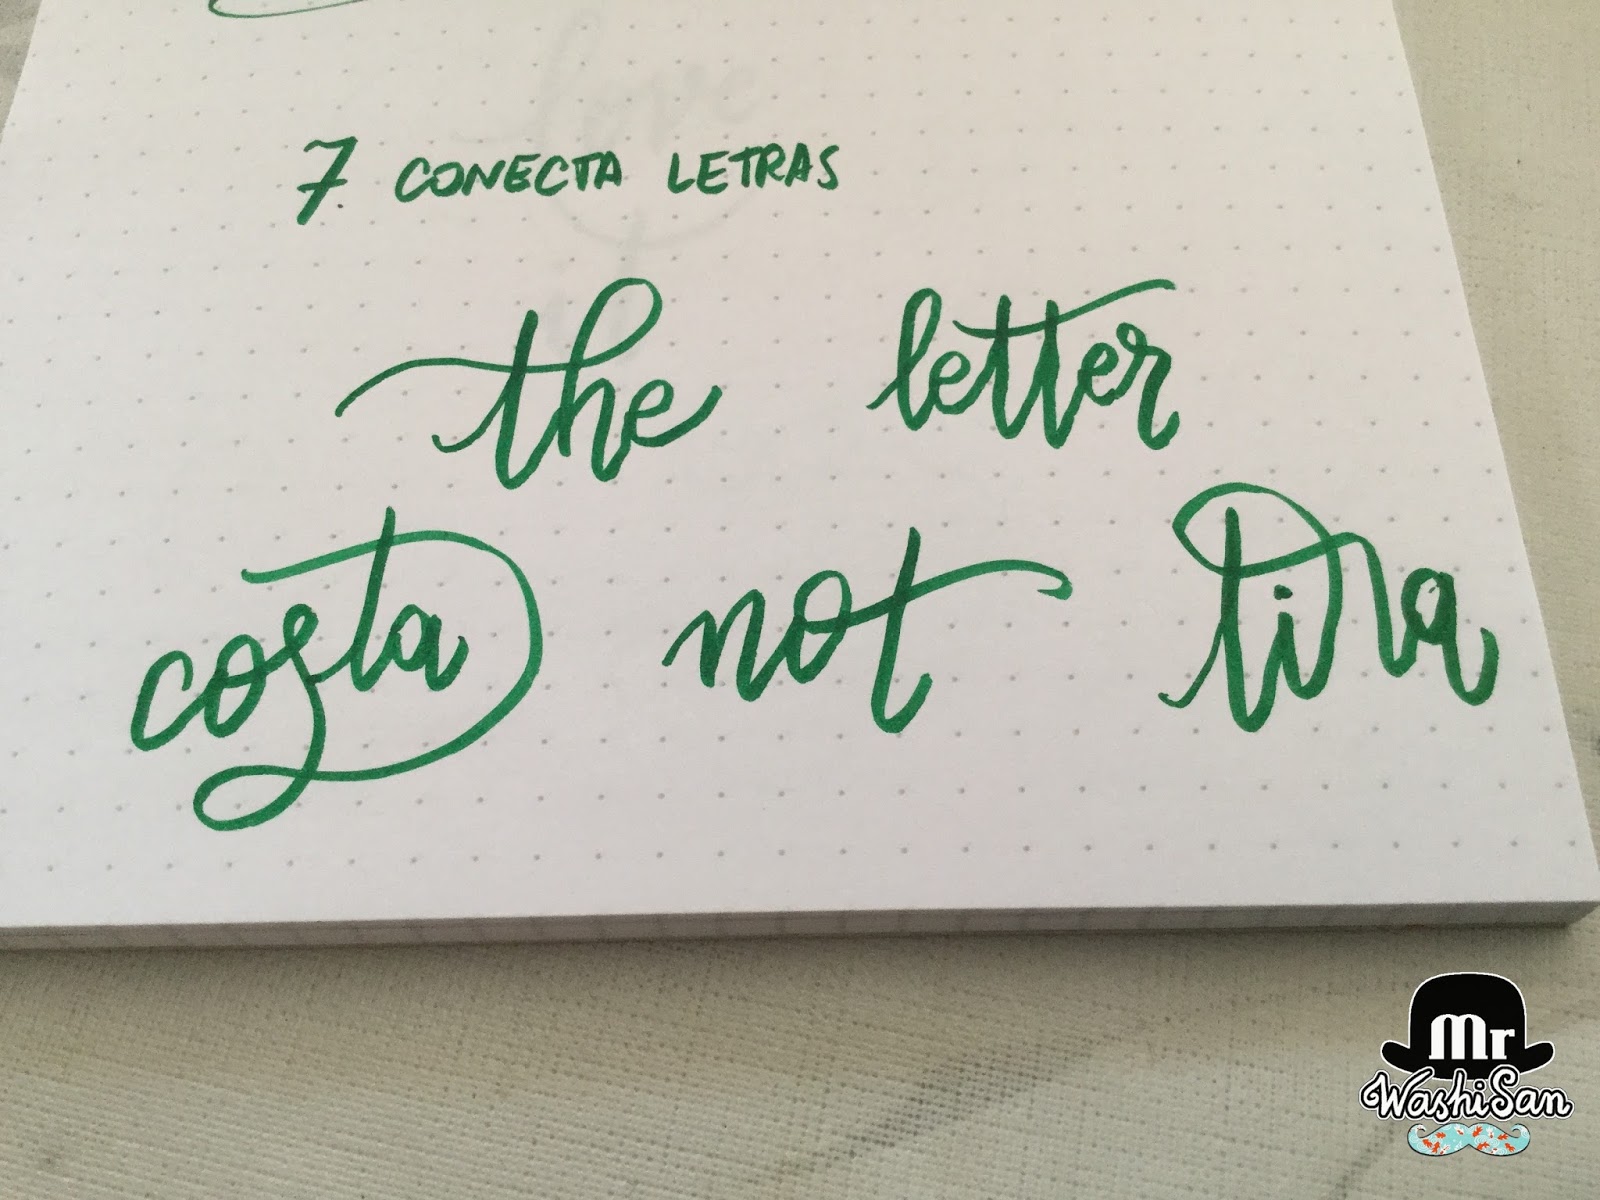 7 CONECTA LETRAS
the letter
costa not tira
Mr
WashiSan